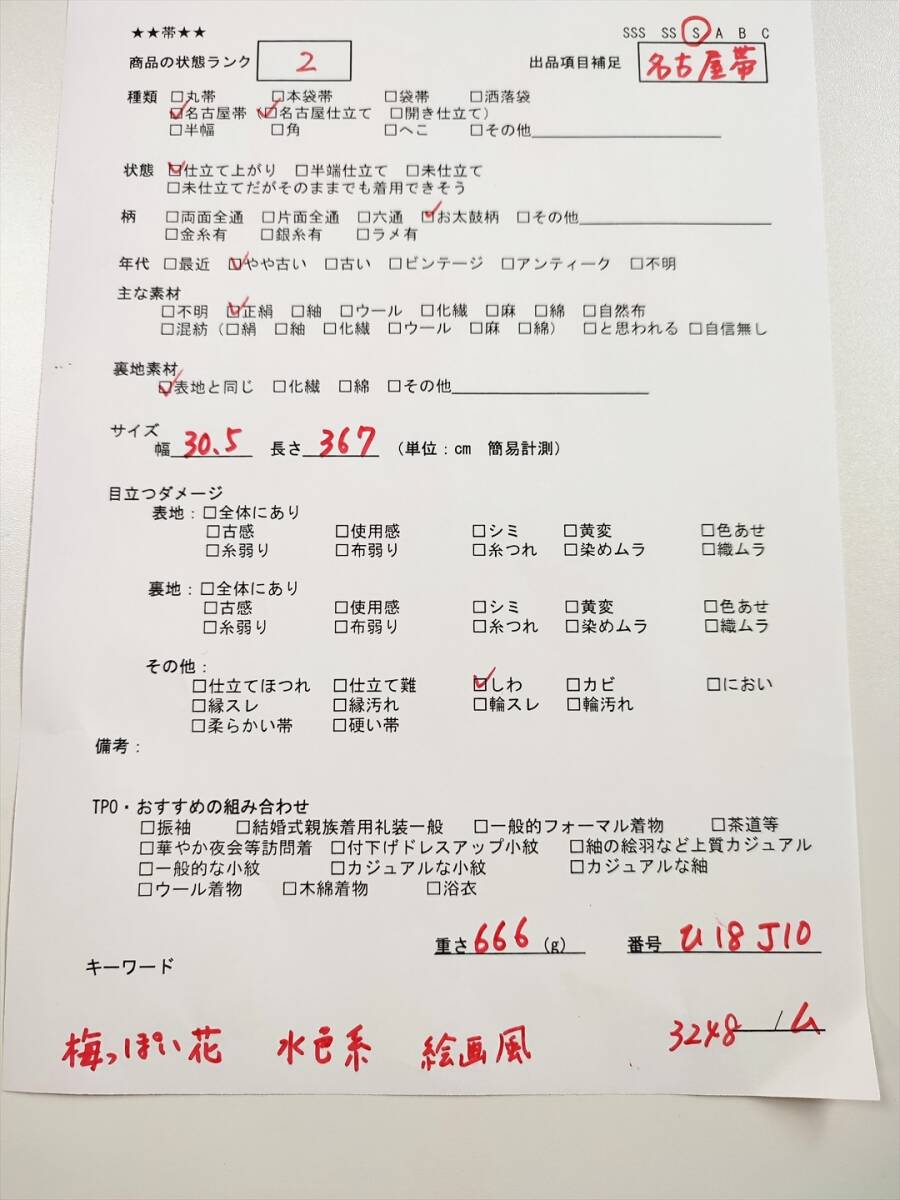 ★★帯★★ SSS SS S A B C
商品の状態ランク 2 出品項目補足 名古屋帯
種類 □丸帯 □本袋帯 □袋帯 □洒落袋
☑名古屋帯（☑名古屋仕立て □開き仕立て）
□半幅 □角 □へこ □その他
状態 ☑仕立て上がり □半端仕立て □未仕立て
□未仕立てだがそのままでも着用できそう
柄 □両面全通 □片面全通 □六通 ☑お太鼓柄 □その他
□金糸有 □銀糸有 □ラメ有
年代 □最近 ☑やや古い □古い □ビンテージ □アンティーク □不明
主な素材
□不明 ☑正絹 □紬 □ウール □化繊 □麻 □綿 □自然布
□混紡（□絹 □紬 □化繊 □ウール □麻 □綿） □と思われる □自信無し
裏地素材
☑表地と同じ □化繊 □綿 □その他
サイズ
幅 30.5 長さ 367 （単位：cm 簡易計測）
目立つダメージ
表地：□全体にあり
□古感 □使用感 □シミ □黄変 □色あせ
□糸弱り □布弱り □糸つれ □染めムラ □織ムラ
裏地：□全体にあり
□古感 □使用感 □シミ □黄変 □色あせ
□糸弱り □布弱り □糸つれ □染めムラ □織ムラ
その他：
□仕立てほつれ □仕立て難 ☑しわ □カビ □におい
□縁スレ □縁汚れ □輪スレ □輪汚れ
□柔らかい帯 □硬い帯
備考：
TPO・おすすめの組み合わせ
□振袖 □結婚式親族着用礼装一般 □一般的フォーマル着物 □茶道等
□華やか夜会等訪問着 □付下げドレスアップ小紋 □紬の絵羽など上質カジュアル
□一般的な小紋 □カジュアルな小紋 □カジュアルな紬
□ウール着物 □木綿着物 □浴衣
重さ 666 (g) 番号 U18J10
キーワード
3248 / ム
梅っぽい花 水色系 絵画風